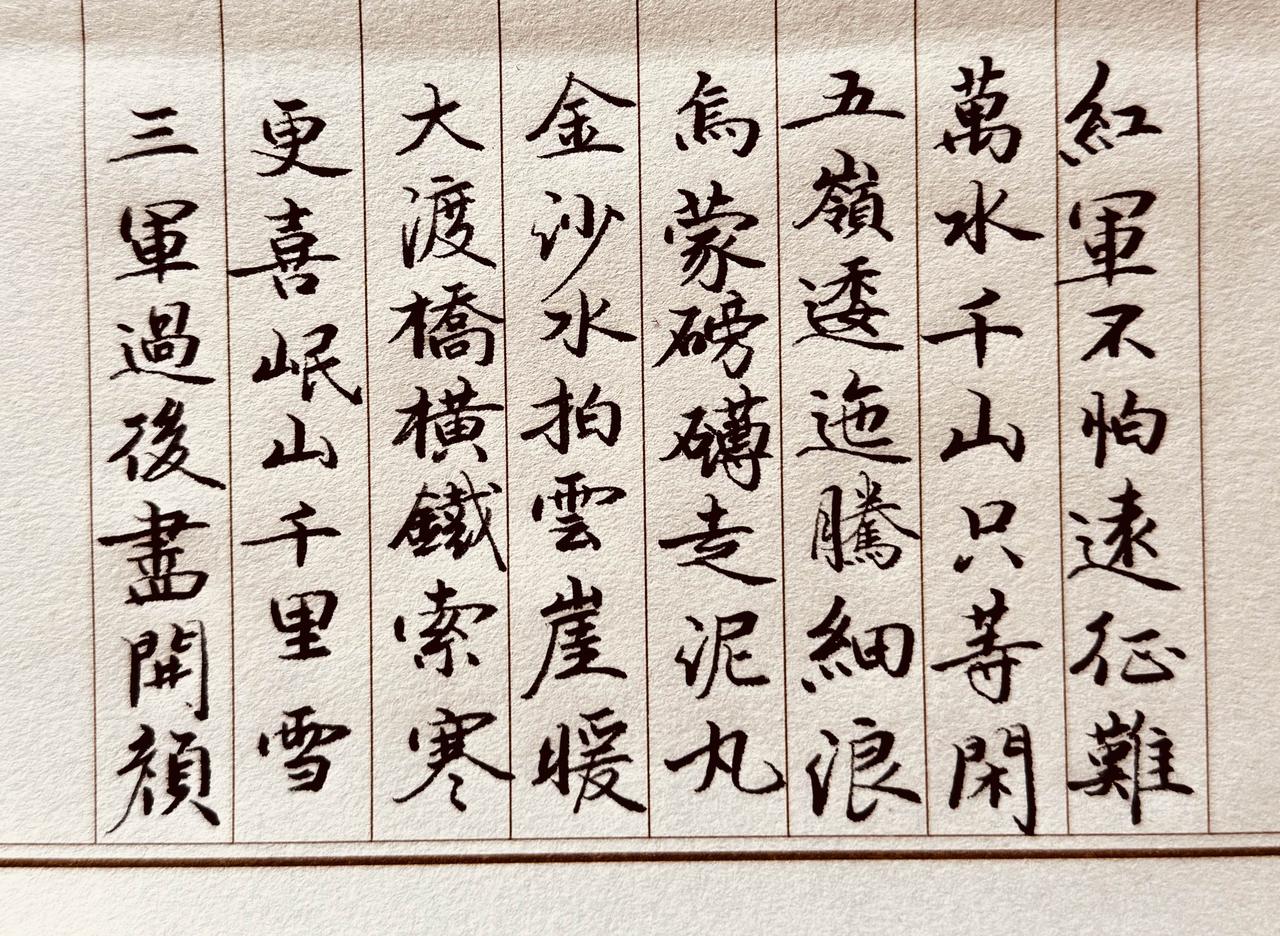 紅軍不怕遠征難
萬水千山只等閑
五嶺逶迤騰細浪
烏蒙磅礴走泥丸
金沙水拍雲崖暖
大渡橋橫鐵索寒
更喜岷山千里雪
三軍過後盡開顏